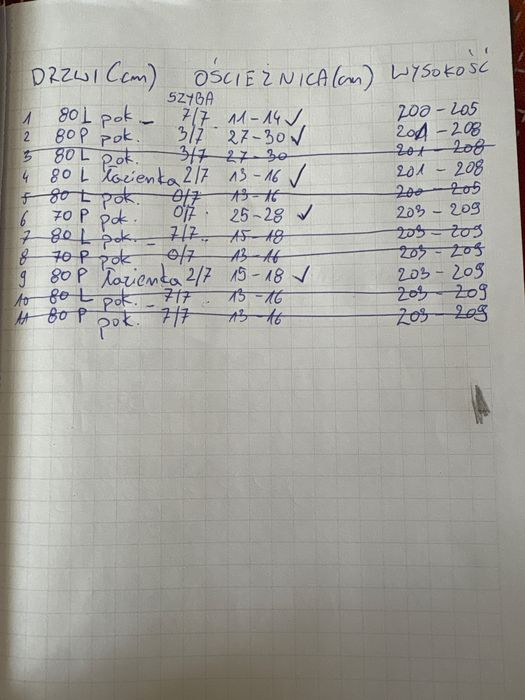 DRZWI (cm) OŚCIEŻNICA (cm) WYSOKOŚĆ
SZYBA
1 80 L pok. - 7/7. 11-14 ✓ 200-205
2 80 P pok. 3/7 27-30 ✓ 201-208
3 80 L pok. 3/7 27-30 201-208
4 80 L łazienka 2/7 13-16 ✓ 201-208
5 80 L pok. 0/7 13-16 200-205
6 70 P pok. 0/7. 25-28 ✓ 203-209
7 80 L pok. - 7/7.. 15-18 203-209
8 70 P pok 0/7 13-16 203-209
9 80 P łazienka 2/7 15-18 ✓ 203-209
10 80 L pok. - 7/7. 13-16 203-209
11 80 P pok. 7/7 13-16 203-209